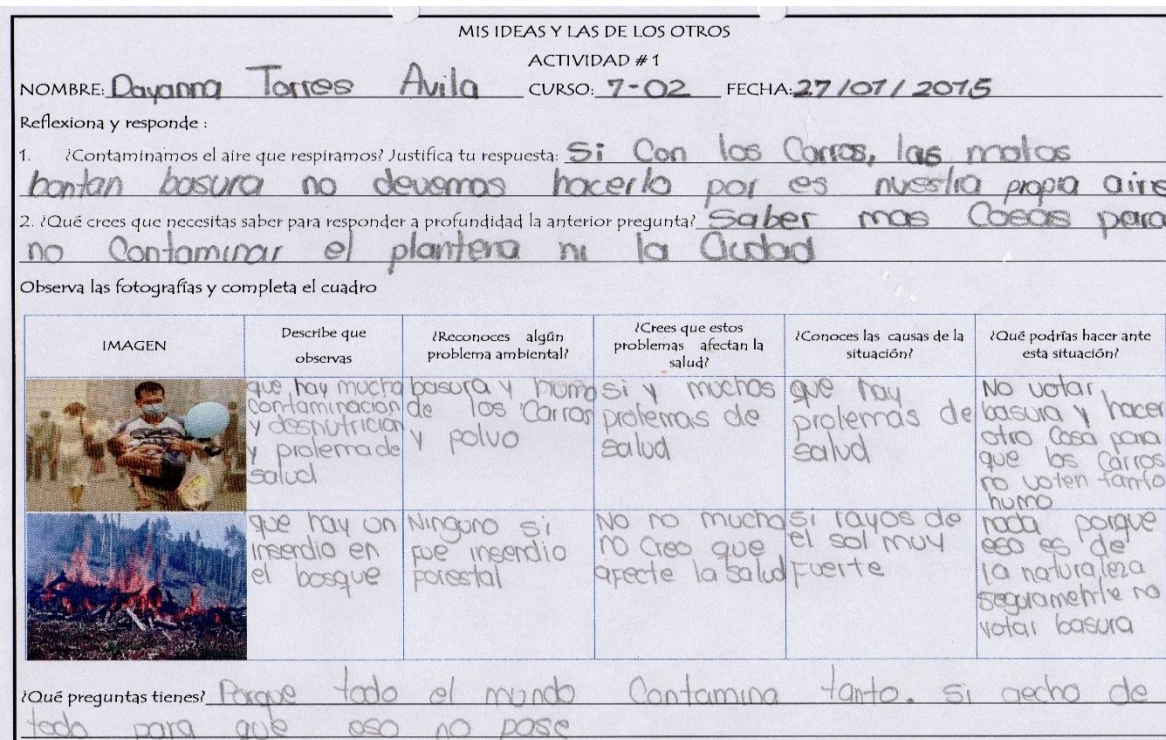 MIS IDEAS Y LAS DE LOS OTROS
ACTIVIDAD # 1
NOMBRE: Dayanna Torres Avila CURSO: 7-02 FECHA: 27/07/2015
Reflexiona y responde :
1. ¿Contaminamos el aire que respiramos? Justifica tu respuesta: Si Con los Carros, las motos
bontan basura no devemos hacerlo por es nuestra propia aire
2. ¿Qué crees que necesitas saber para responder a profundidad la anterior pregunta? Saber mas Cosas para
no Contaminar el plantena ni la Ciudad
Observa las fotografías y completa el cuadro
IMAGEN
Describe que
observas
¿Reconoces algún
problema ambiental?
¿Crees que estos
problemas afectan la
salud?
¿Conoces las causas de la
situación?
¿Qué podrías hacer ante
esta situación?
que hay mucha
contaminacion
y desnutricion
y prolema de
salud
basura y humo
de los Carros
y polvo
Si y muchos
prolemas de
salud
que hay
prolemas de
salud
No votar
basura y hacer
otro Cosa para
que los Carros
no voten tanto
humo
que hay un
insendio en
el bosque
Ninguno si
fue insendio
forestal
No no mucho
no creo que
afecte la salud
si rayos de
el sol muy
fuerte
nada porque
eso es de
la naturaleza
seguramente no
votar basura
¿Qué preguntas tienes? Porque todo el mundo Contamina tanto. si aecho de
todo para que eso no pase